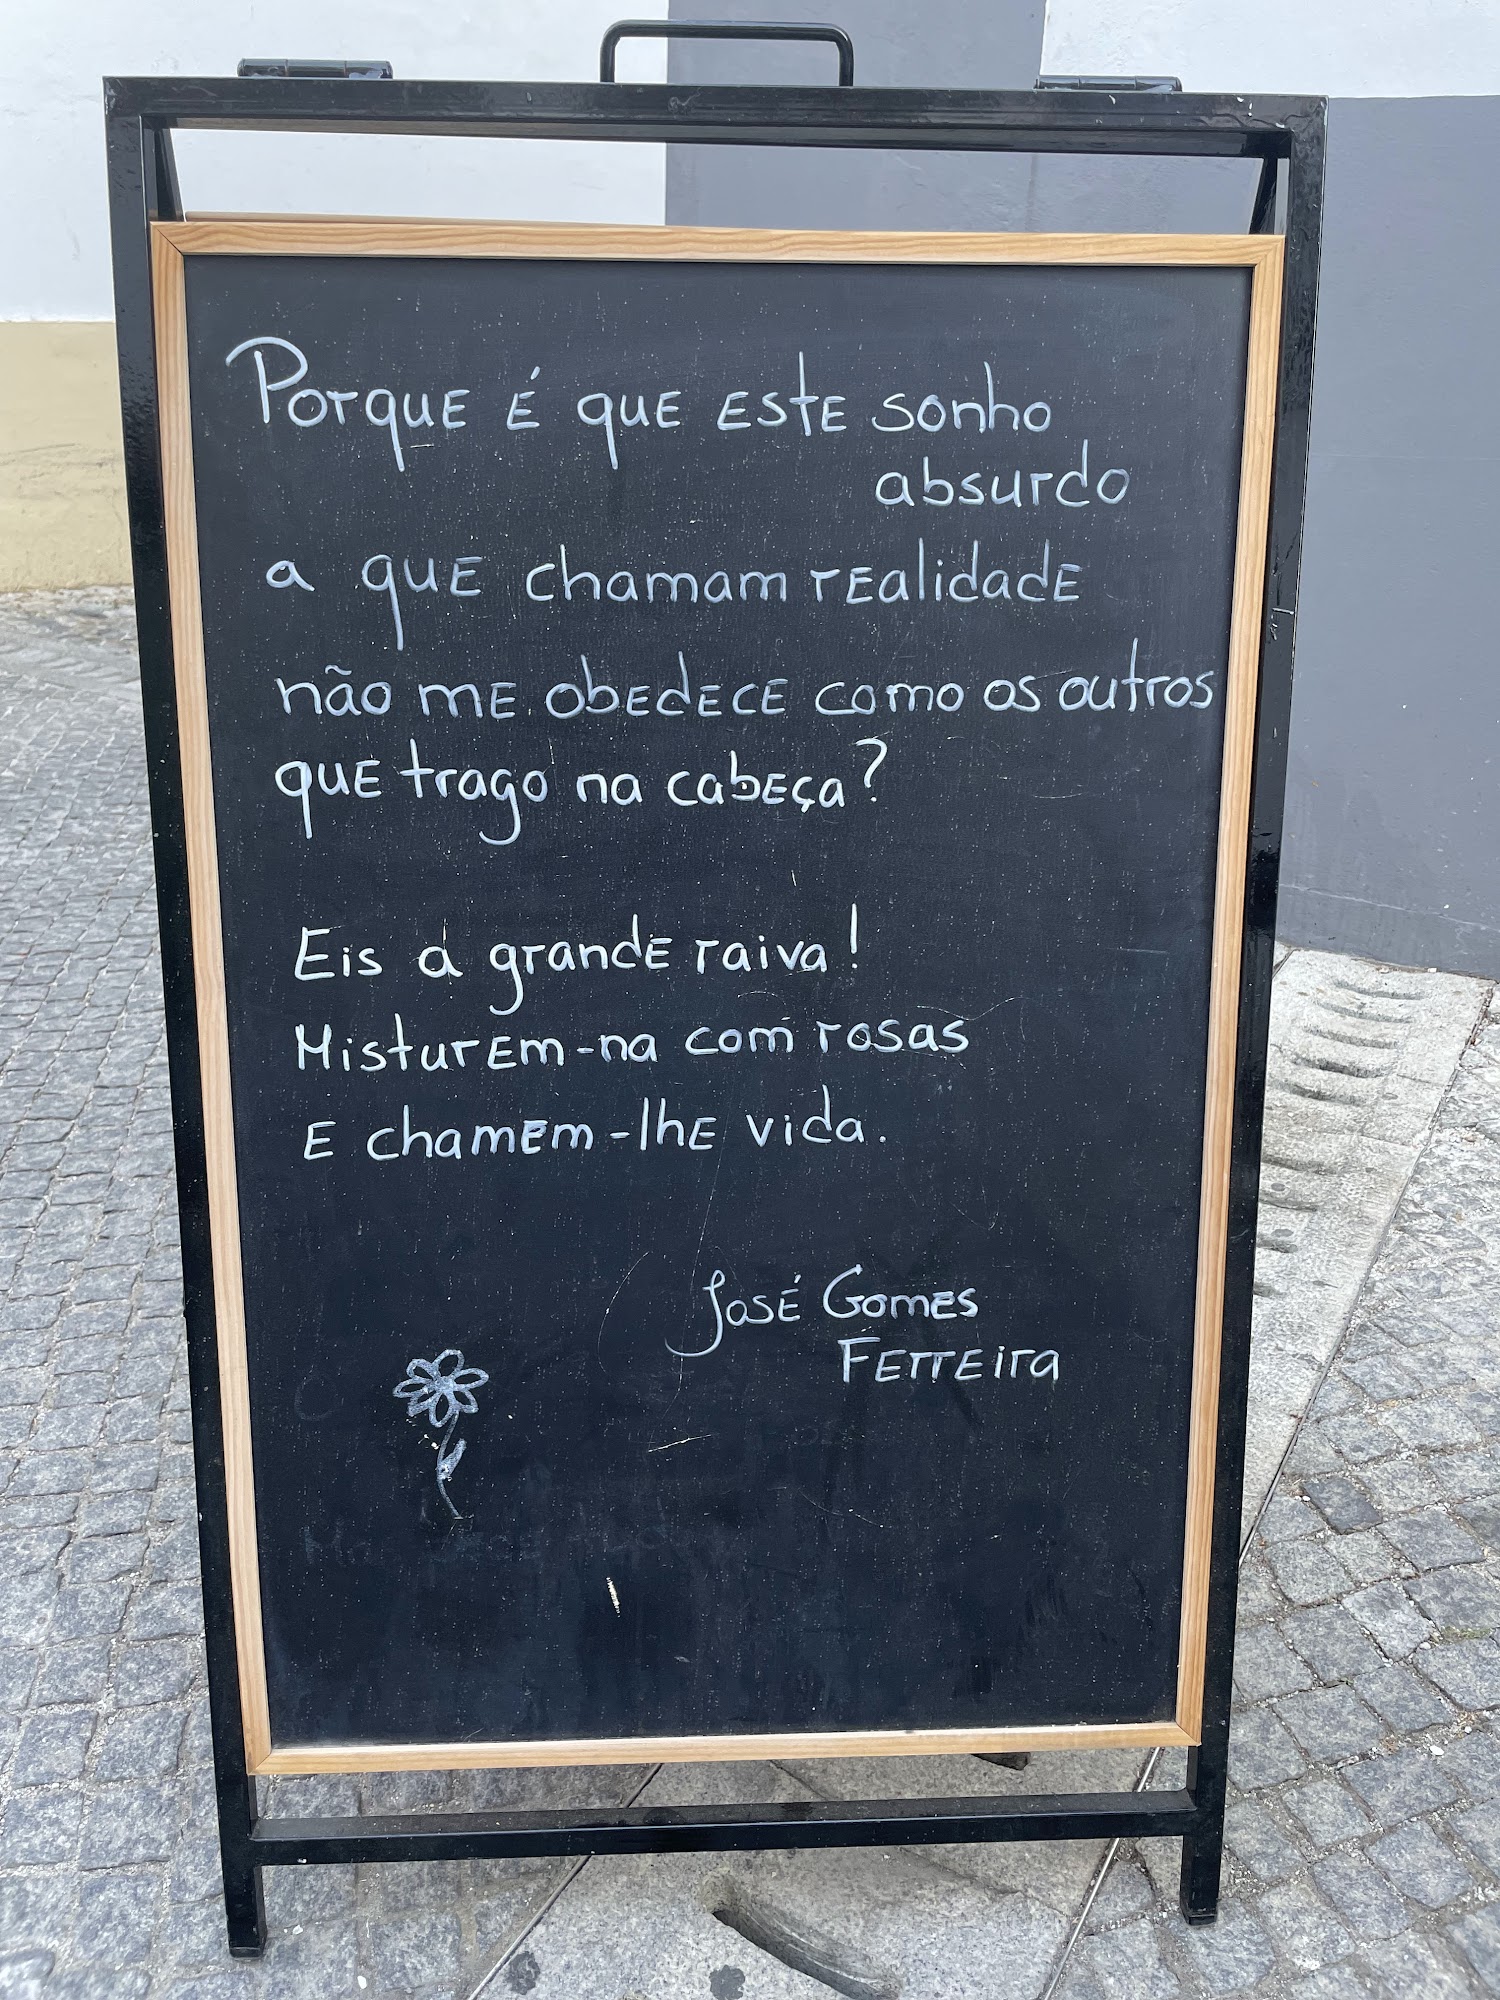 Porque é que este sonho
absurdo
a que chamam realidade
não me obedece como os outros
que trago na cabeça?
Eis a grande raiva!
Misturem-na com rosas
e chamem-lhe vida.
José Gomes
Ferreira